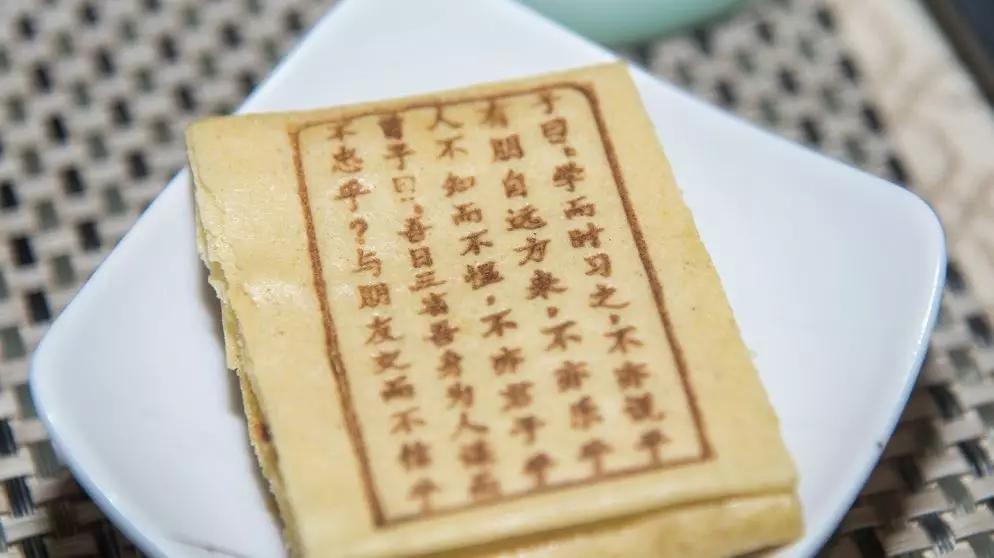 子曰：学而时习之，不亦说乎
有朋自远方来，不亦乐乎
人不知而不愠，不亦君子乎
曾子曰：吾日三省吾身为人谋而
不忠乎？与朋友交而不信乎